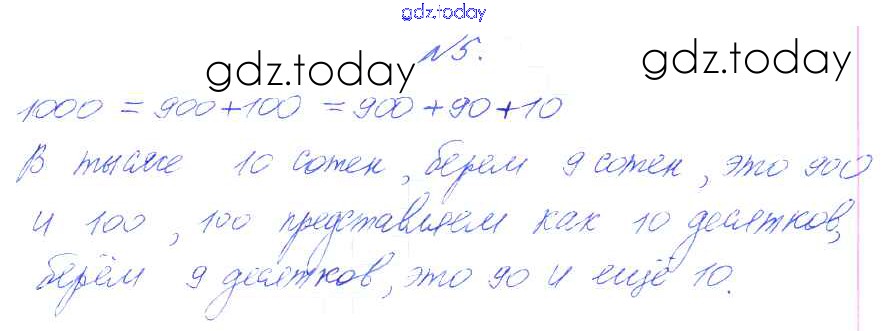 gdz.today
№5.
gdz.today gdz.today
1000 = 900+100 = 900+90+10
В тысяче 10 сотен, берем 9 сотен, это 900
и 100, 100 представляем как 10 десятков,
берём 9 десятков, это 90 и ещё 10.